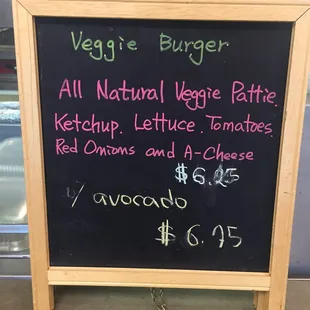 Veggie Burger
All Natural Veggie Pattie.
Ketchup. Lettuce. Tomatoes.
Red Onions and A-Cheese
$6.25
w/ avocado
$6.75